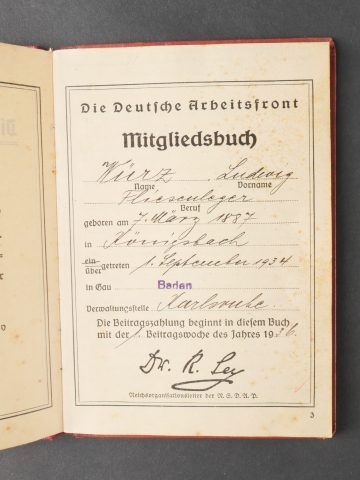 Die Deutsche Arbeitsfront
Mitgliedsbuch
Würz Ludwig
Name Vorname
Fliesenleger
Beruf
geboren am 7. März 1887
in Königsbach
ein-
übergetreten 1. September 1934
in Gau Baden
Verwaltungsstelle Karlsruhe.
Die Beitragszahlung beginnt in diesem Buch
mit der 1. Beitragswoche des Jahres 1936.
Dr. R. Ley
Reichsorganisationsleiter der N.S.D.A.P.
3